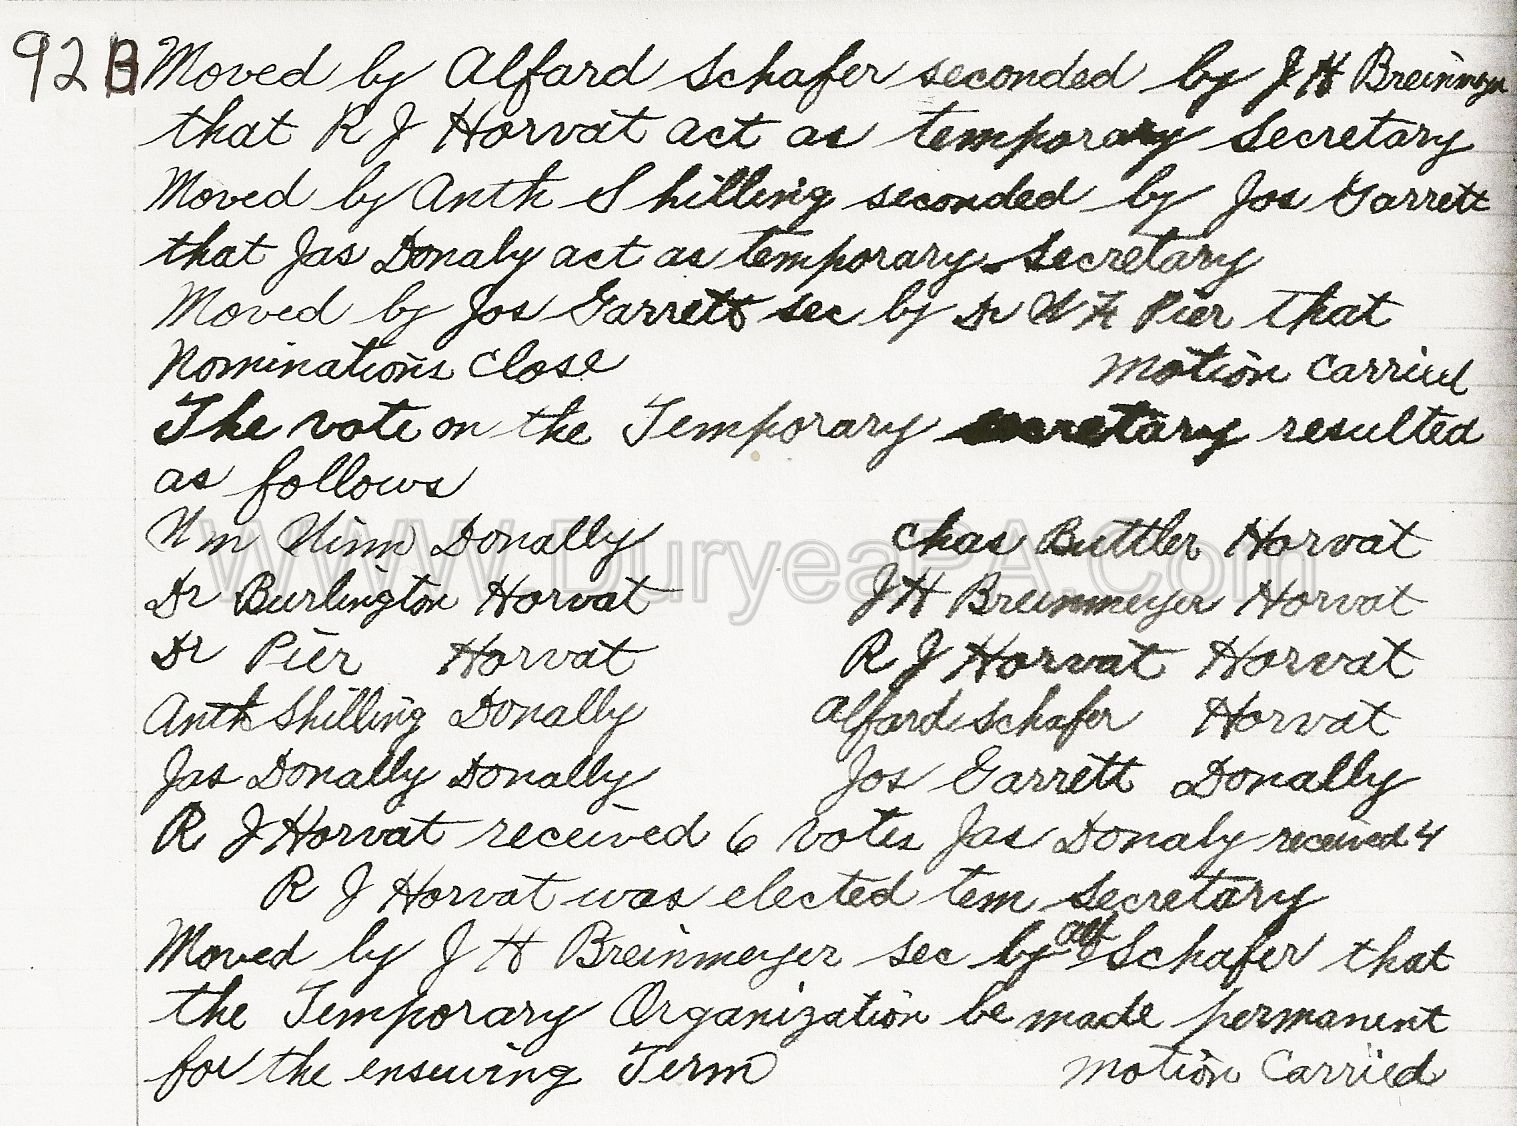 92B Moved by Alfard Schafer seconded by J H Breinmeyer
that R J Horvat act as temporary secretary
Moved by Anth Shilling seconded by Jos Garrett
that Jas Donaly act as temporary secretary
Moved by Jos Garrett sec by Dr W F Pier that
Nominations close motion carried
The vote on the Temporary secretary resulted
as follows
Wm Winn Donally Chas Buttler Horvat
WWW.DuryeaPA.Com
Dr Burlington Horvat J H Breinmeyer Horvat
Dr Pier Horvat R J Horvat Horvat
Anth Shilling Donally Alfard Schafer Horvat
Jas Donally Donally Jos Garrett Donally
R J Horvat received 6 votes Jas Donaly received 4
R J Horvat was elected tem secretary
Moved by J H Breinmeyer sec by Alf Schafer that
the Temporary Organization be made permanent
for the ensuing Term motion Carried